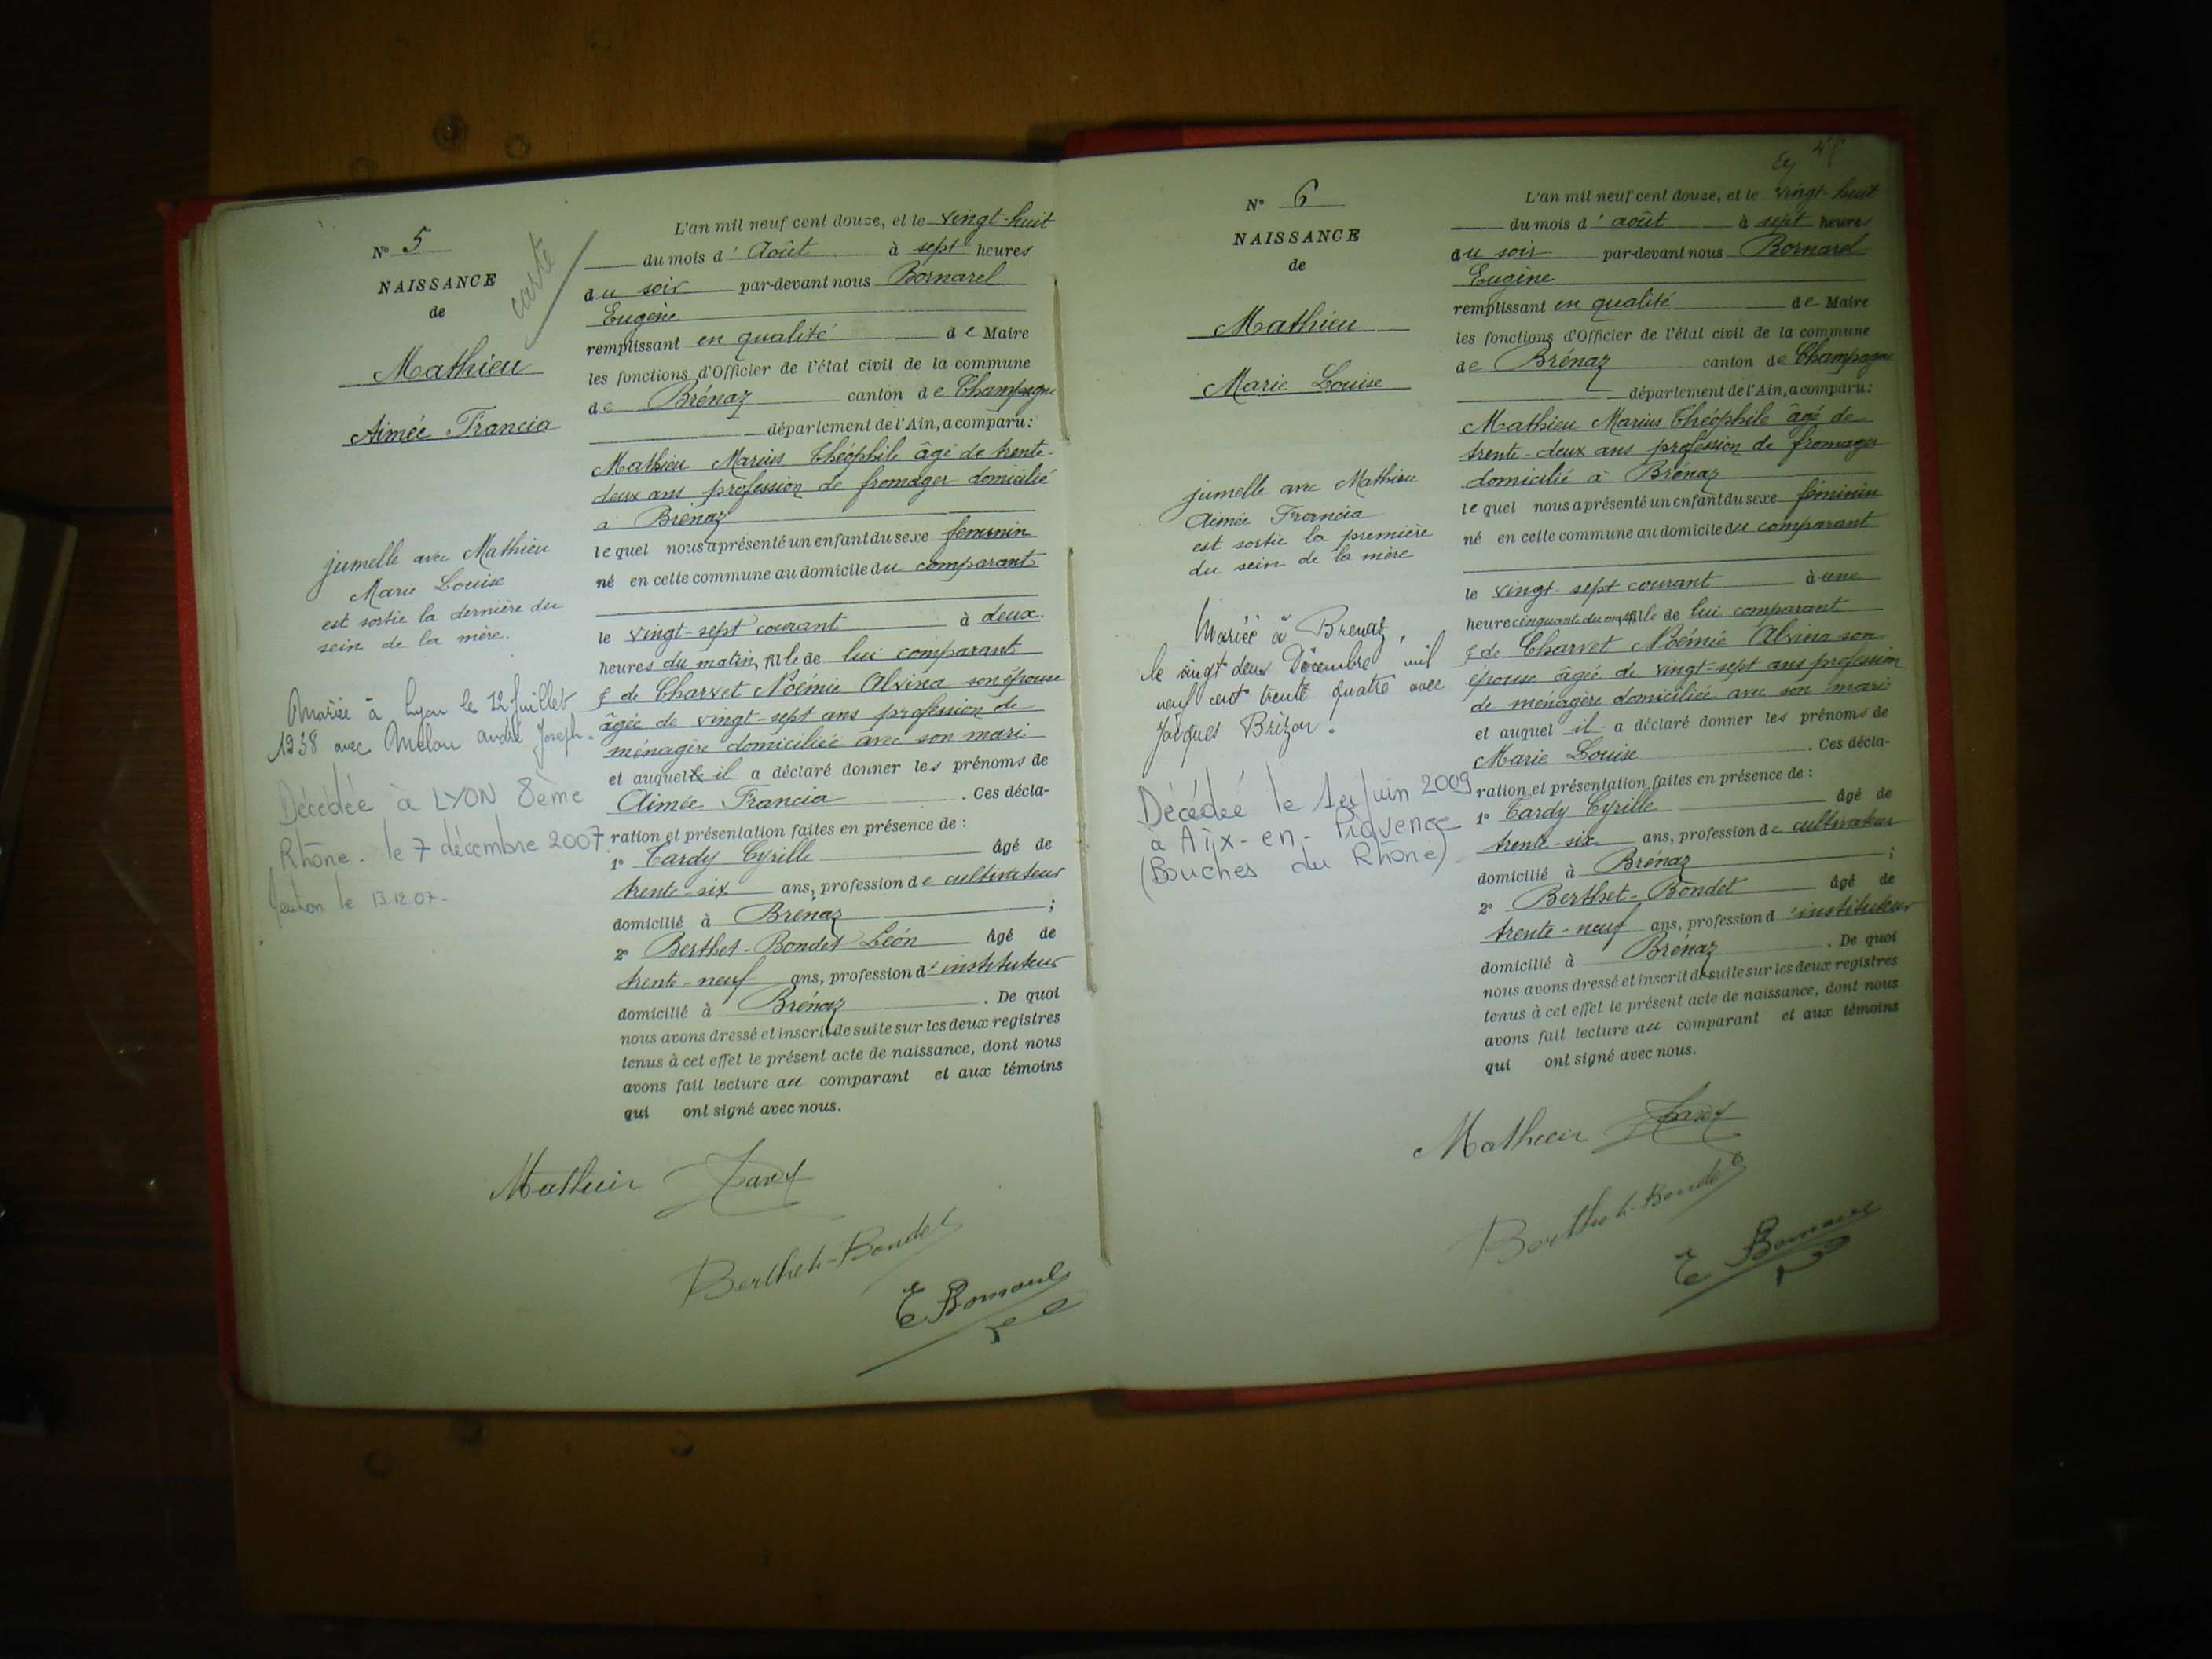 N° 5
NAISSANCE
de
Mathieu
Aimée Francia
carte
jumelle avec Mathieu
Marie Louise
est sortie la dernière du
sein de la mère.
Mariée à Lyon le 22 Juillet
1938 avec Melou andré Joseph.
Décédée à LYON 8ème
Rhône. le 7 décembre 2007
le 13.12.07.
L'an mil neuf cent douze, et le vingt-huit
du mois d'Août à sept heures
du soir par-devant nous Bornarel
Eugène
remplissant en qualité de Maire
les fonctions d'Officier de l'état civil de la commune
de Brénaz canton de Champagne
département de l'Ain, a comparu:
Mathieu Marius Théophile âgé de trente-
deux ans profession de fromager domicilié
à Brénaz
lequel nous a présenté un enfant du sexe feminin
né en cette commune au domicile du comparant
le vingt-sept courant à deux
heures du matin, fille de lui comparant
& de Charvet Noémie Alvina son épouse
âgée de vingt-sept ans profession de
ménagère domiciliée avec son mari
et auquelle il a déclaré donner les prénoms de
Aimée Francia. Ces décla-
ration et présentation faites en présence de :
1° Tardy Cyrille âgé de
trente-six ans, profession de cultivateur
domicilié à Brénaz ;
2° Berthet-Bondet Léon âgé de
trente-neuf ans, profession d'instituteur
domicilié à Brénaz. De quoi
nous avons dressé et inscrit de suite sur les deux registres
tenus à cet effet le présent acte de naissance, dont nous
avons fait lecture au comparant et aux témoins
qui ont signé avec nous.
Mathieu Tardy
Berthet-Bondet
E Bornarel
N° 6
NAISSANCE
de
Mathieu
Marie Louise
jumelle avec Mathieu
Aimée Francia
est sortie la première
du sein de la mère
Mariée à Brenaz,
le vingt deux Décembre mil
neuf cent trente quatre avec
Jacques Brizon.
Décédée le 1er Juin 2009
à Aix-en-Provence
(Bouches du Rhône)
L'an mil neuf cent douze, et le vingt-huit
du mois d'août à sept heures
du soir par-devant nous Bornarel
Eugène
remplissant en qualité de Maire
les fonctions d'Officier de l'état civil de la commune
de Brénaz canton de Champagne
département de l'Ain, a comparu:
Mathieu Marius Théophile âgé de
trente-deux ans profession de fromager
domicilié à Brénaz
lequel nous a présenté un enfant du sexe féminin
né en cette commune au domicile du comparant
le vingt-sept courant à une
heure cinquante du matin fille de lui comparant
& de Charvet Noémie Alvina son
épouse âgée de vingt-sept ans profession
de ménagère domiciliée avec son mari
et auquel il a déclaré donner les prénoms de
Marie Louise. Ces décla-
ration et présentation faites en présence de :
1° Tardy Cyrille âgé de
trente-six ans, profession de cultivateur
domicilié à Brénaz ;
2° Berthet-Bondet âgé de
trente-neuf ans, profession d'instituteur
domicilié à Brénaz. De quoi
nous avons dressé et inscrit de suite sur les deux registres
tenus à cet effet le présent acte de naissance, dont nous
avons fait lecture au comparant et aux témoins
qui ont signé avec nous.
Mathieu Tardy
Berthet-Bondet
E Bornarel